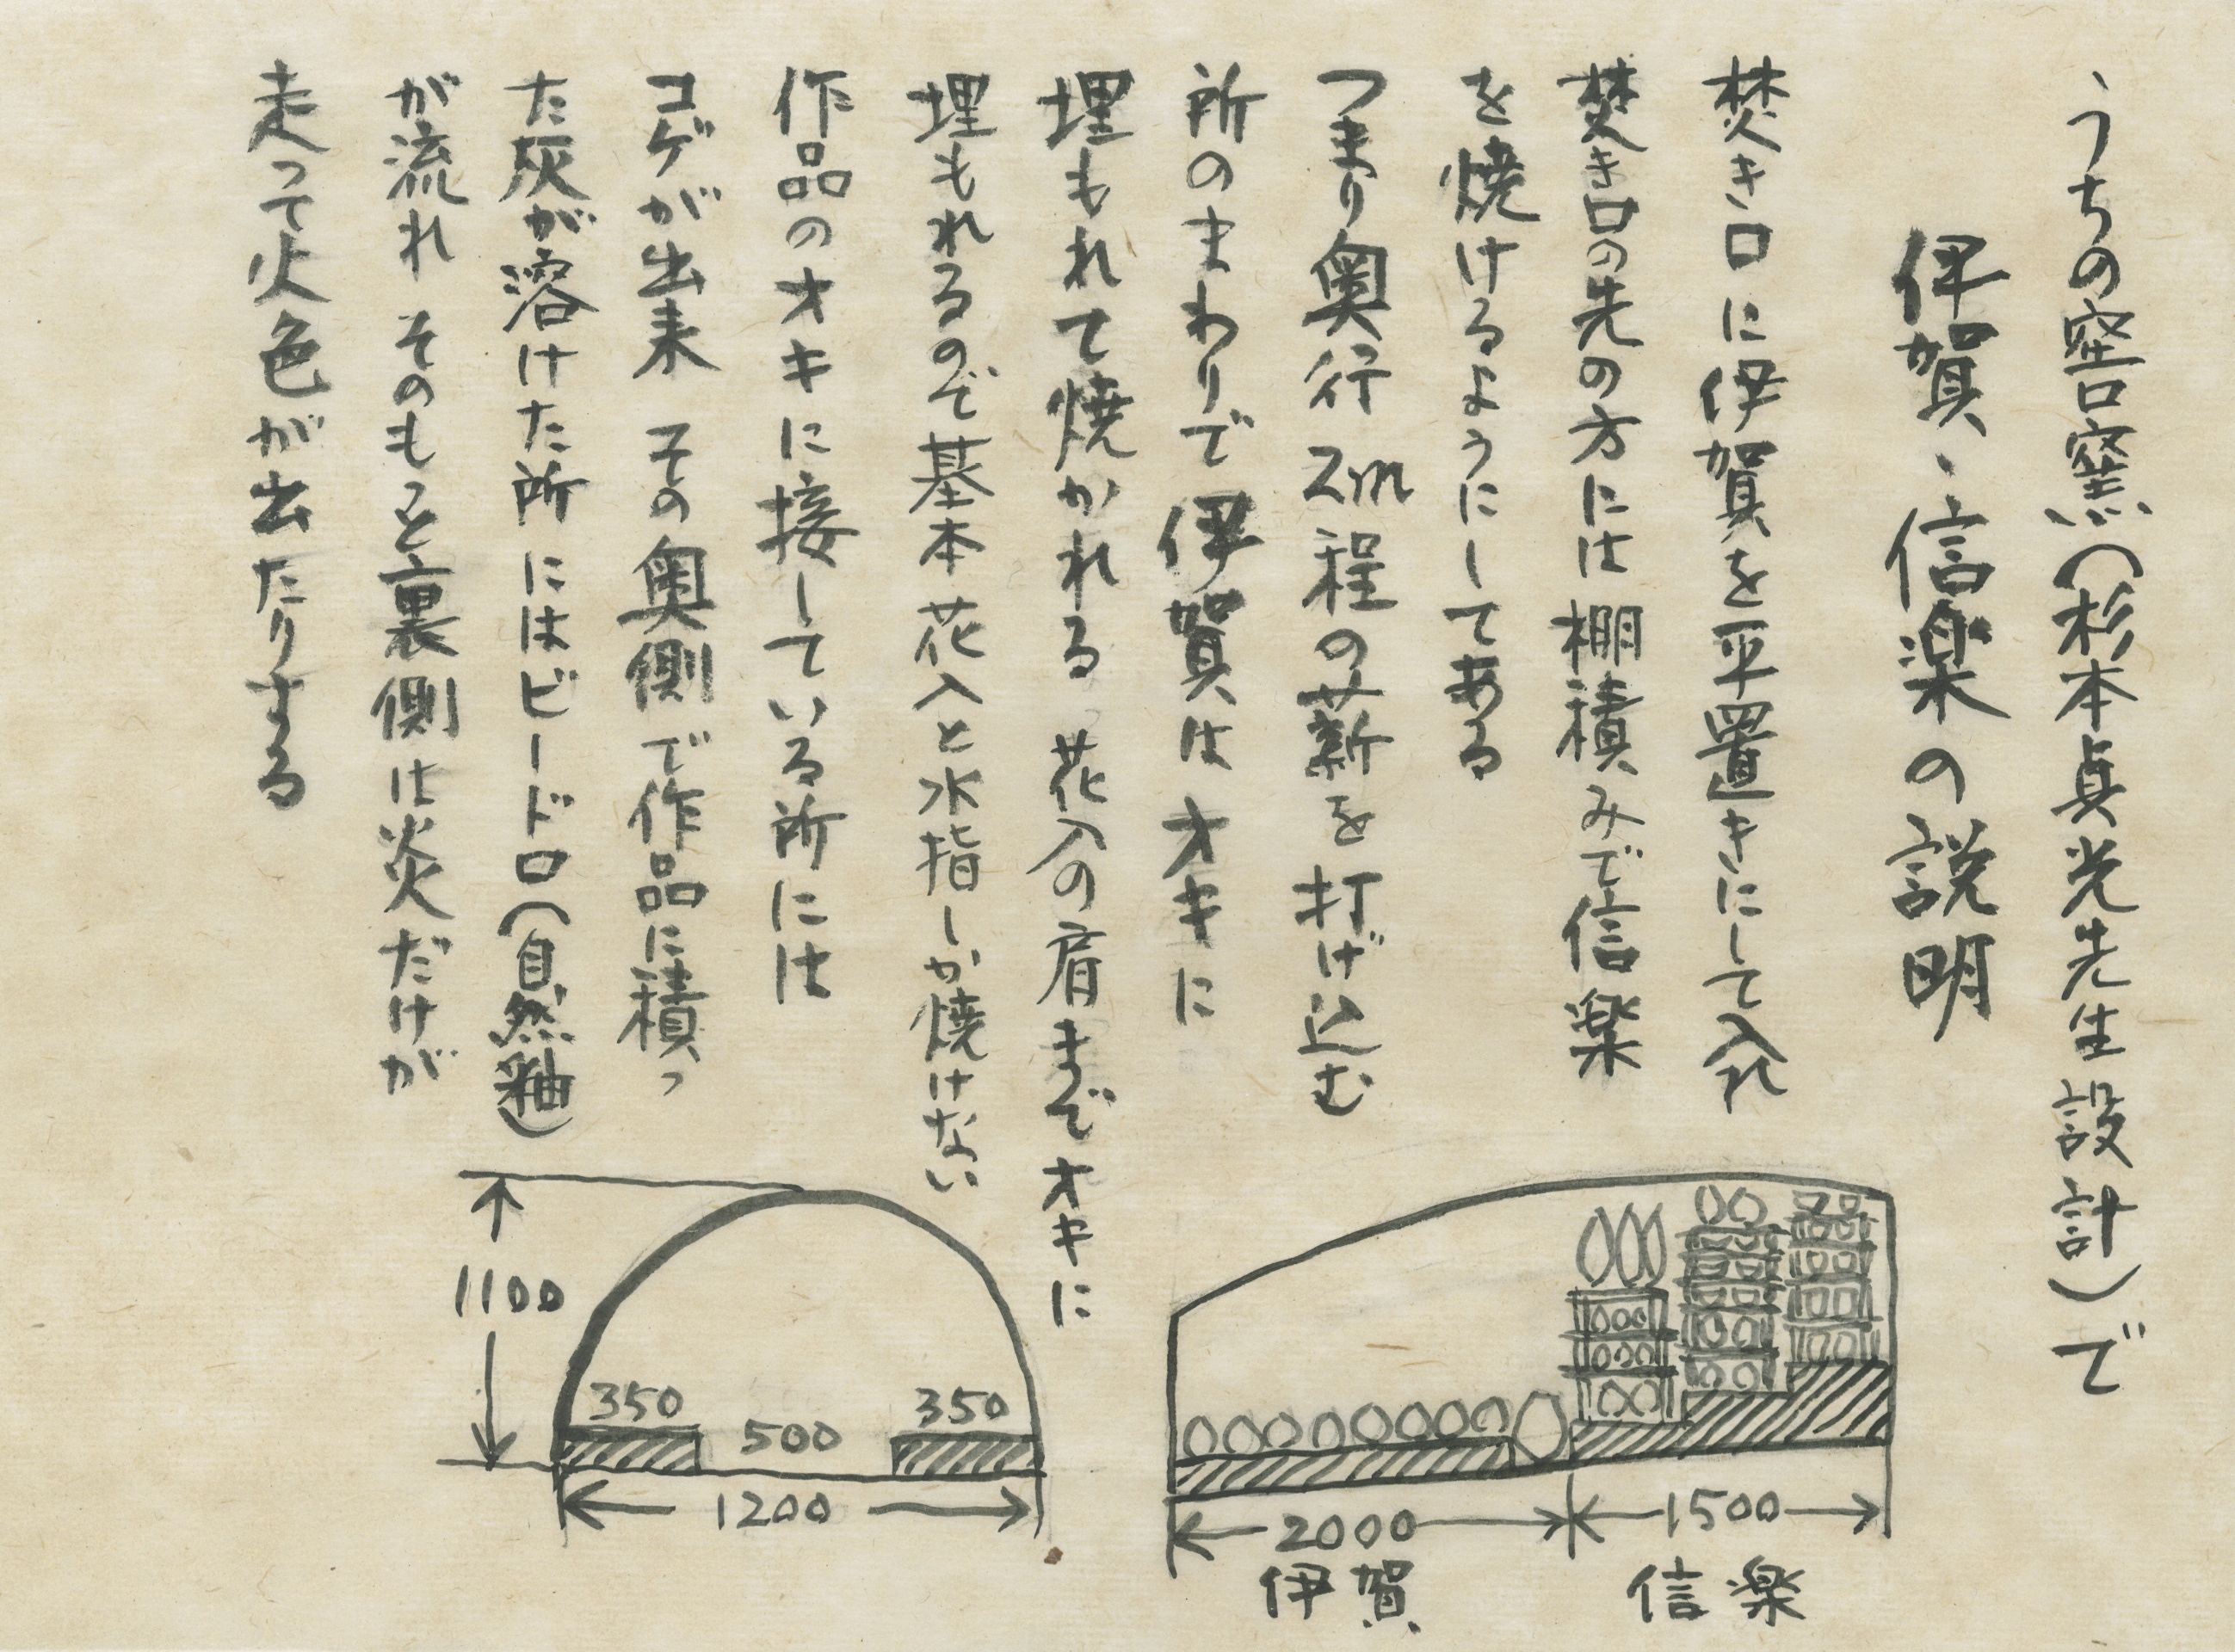 うちの窖窯(杉本貞光先生設計)で
伊賀・信楽の説明
焚き口に伊賀を平置きにして入れ
焚き口の先の方には棚積みで信楽
を焼けるようにしてある
つまり奥行2m程の薪を打げ込む
所のまわりで伊賀はオキに
埋もれて焼かれる 花入の肩までオキに
埋もれるので基本花入と水指しか焼けない
作品のオキに接している所には
コゲが出来 その奥側で作品に積っ
た灰が溶けた所にはビードロ(自然釉)
が流れ そのもっと裏側は炎だけが
走って火色が出たりする
1100
350
500
350
1200
2000
1500
伊賀
信楽